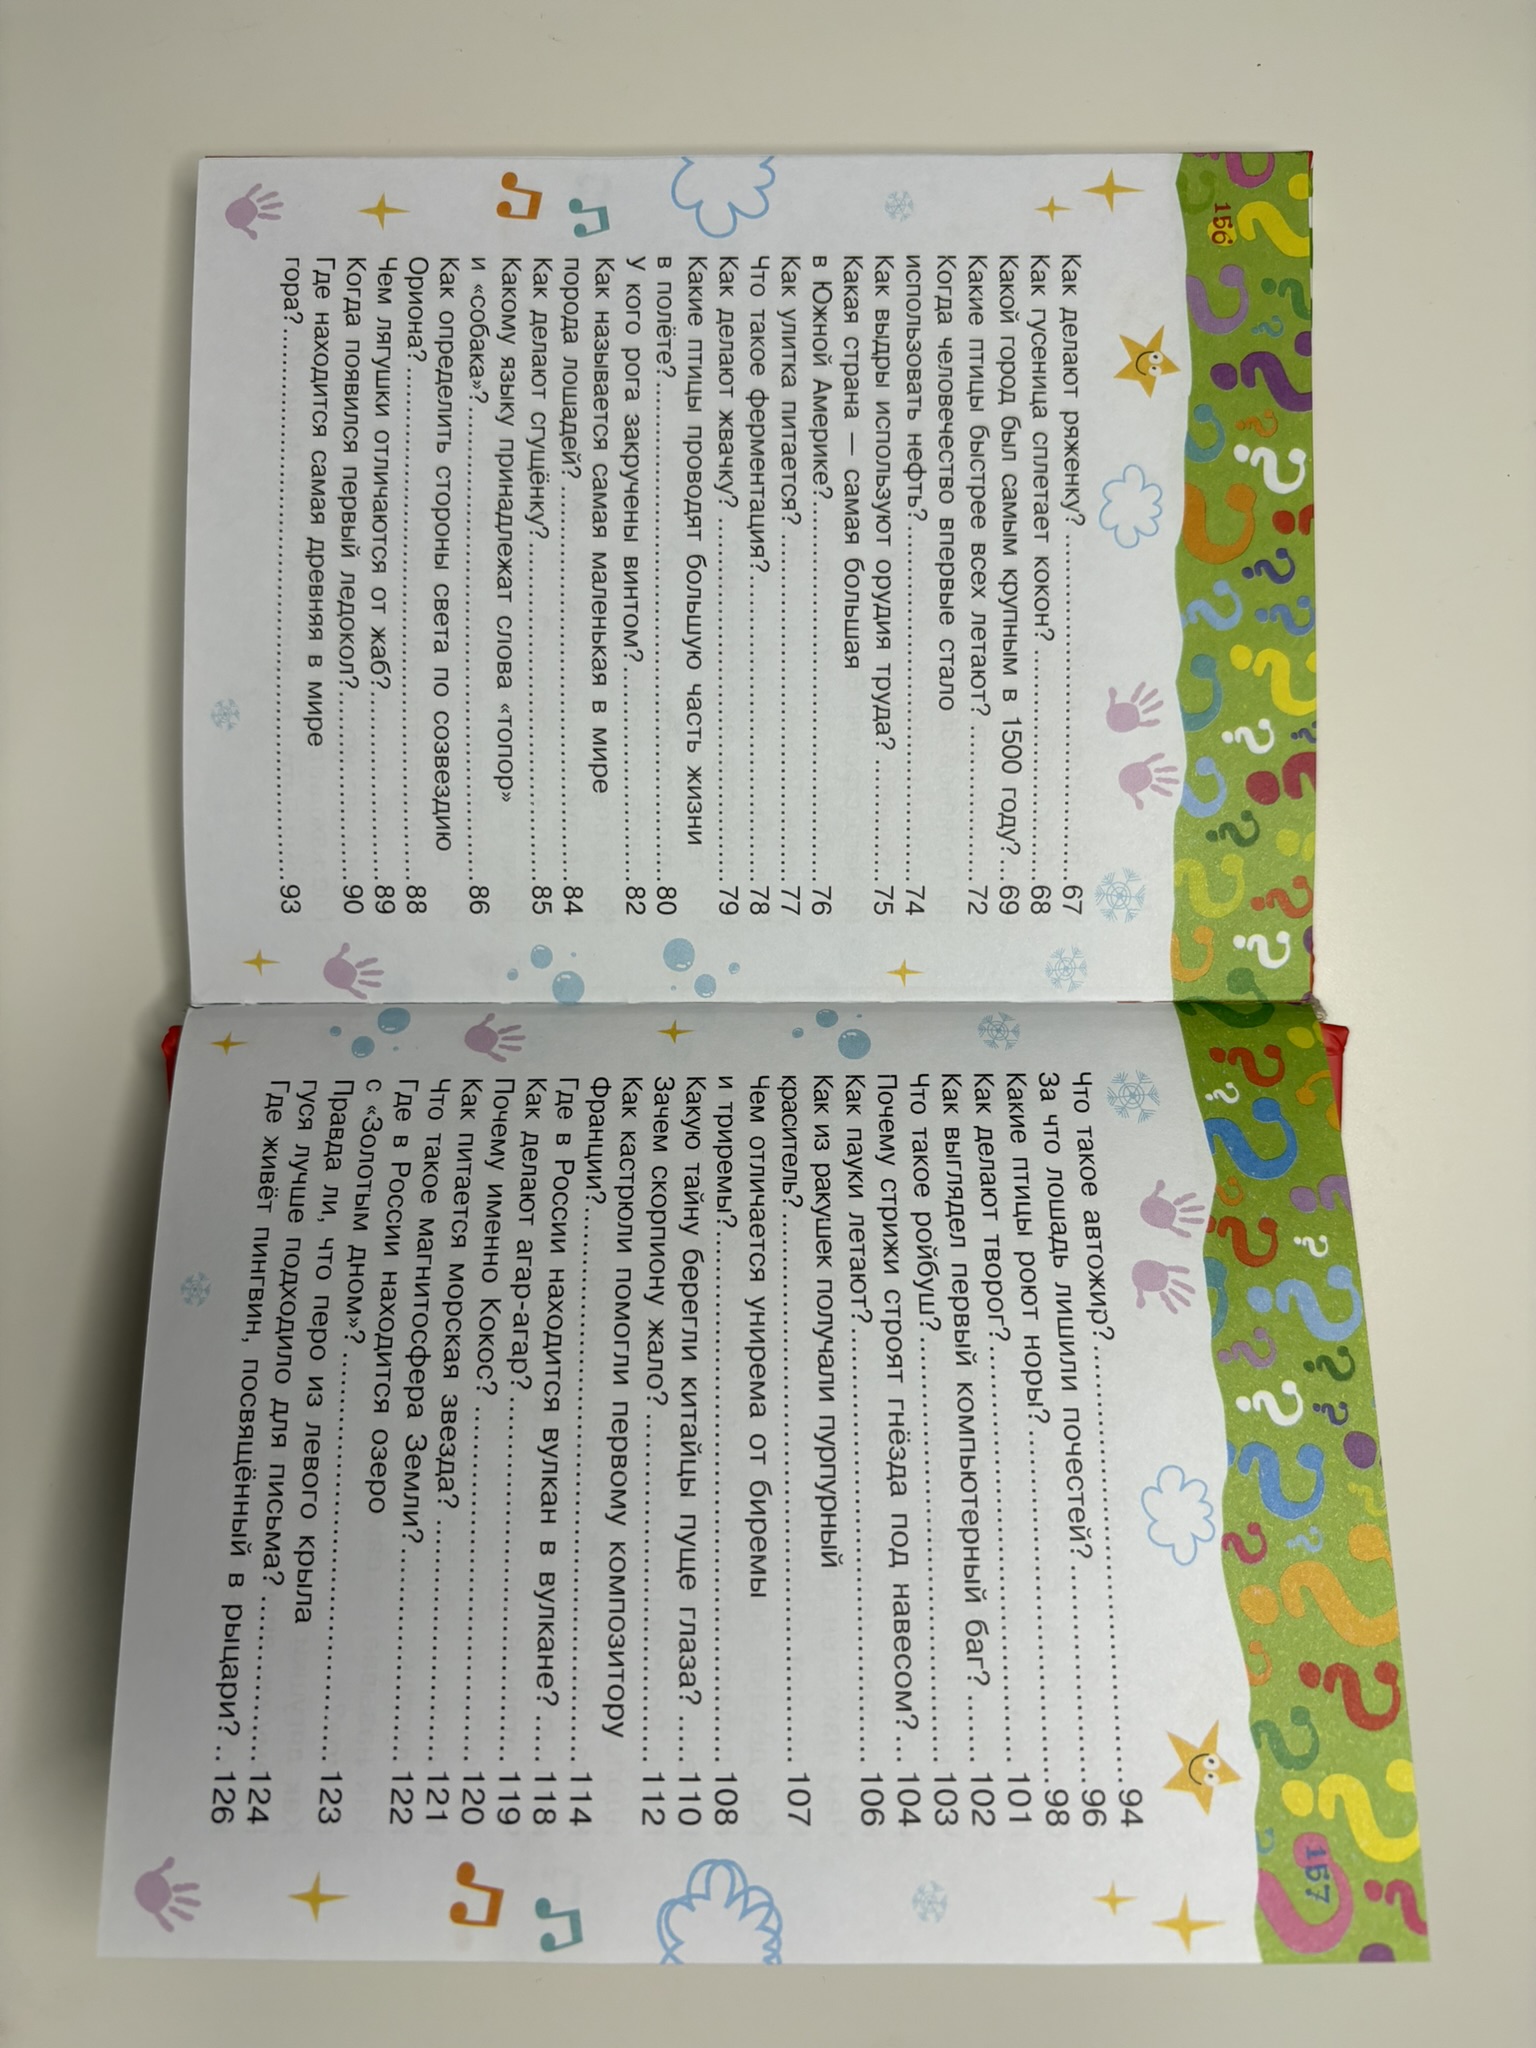 156
Как делают ряженку?................................67
Как гусеница сплетает кокон?......................68
Какой город был самым крупным в 1500 году?...69
Какие птицы быстрее всех летают?................72
Когда человечество впервые стало
использовать нефть?................................74
Как выдры используют орудия труда?............75
Какая страна — самая большая
в Южной Америке?................................76
Как улитка питается?................................77
Что такое ферментация?............................78
Как делают жвачку?................................79
Какие птицы проводят большую часть жизни
в полёте?................................80
У кого рога закручены винтом?....................82
Как называется самая маленькая в мире
порода лошадей?................................84
Как делают сгущёнку?................................85
Какому языку принадлежат слова «топор»
и «собака»?................................86
Как определить стороны света по созвездию
Ориона?................................88
Чем лягушки отличаются от жаб?..................89
Когда появился первый ледокол?..................90
Где находится самая древняя в мире
гора?................................93
Что такое автожир?................................94
За что лошадь лишили почестей?..................96
Какие птицы роют норы?............................98
Как делают творог?................................101
Как выглядел первый компьютерный баг?......102
Что такое ройбуш?................................103
Почему стрижи строят гнёзда под навесом?...104
Как пауки летают?................................106
Как из ракушек получали пурпурный
краситель?................................107
Чем отличается унирема от биремы
и триремы?................................108
Какую тайну берегли китайцы пуще глаза?....110
Зачем скорпиону жало?............................112
Как кастрюли помогли первому композитору
Франции?................................114
Где в России находится вулкан в вулкане?....118
Как делают агар-агар?............................119
Почему именно Кокос?............................120
Как питается морская звезда?....................121
Что такое магнитосфера Земли?..................122
Где в России находится озеро
с «Золотым дном»?................................123
Правда ли, что перо из левого крыла
гуся лучше подходило для письма?............124
Где живёт пингвин, посвящённый в рыцари?..126
157